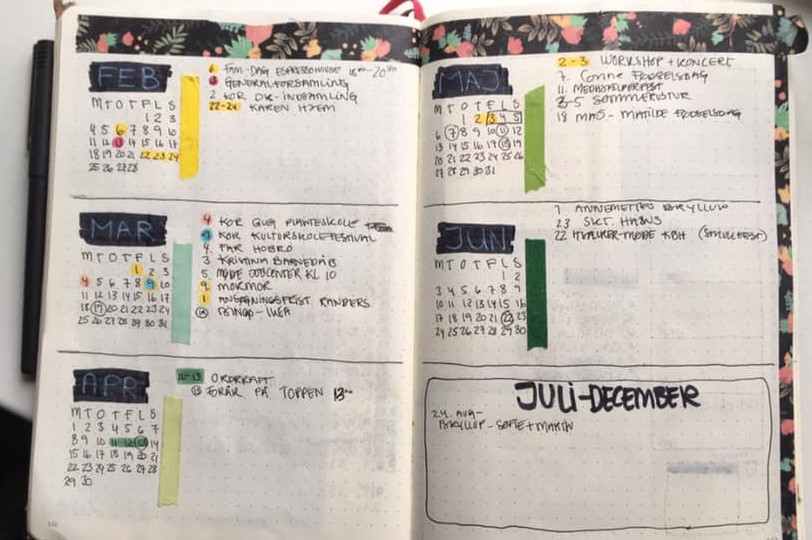 FEB
MTOTFLS
1 2 3
4 5 6 7 8 9 10
11 12 13 14 15 16 17
18 19 20 21 22 23 24
25 26 27 28
6 FAM-DAG ESPRESSOHOUSE
GENERALFORSAMLING
2 KOR DK-INDSAMLING
22-24 KAREN HJEM
MAR
MTOTFLS
1 2 3
4 5 6 7 8 9 10
11 12 13 14 15 16 17
18 19 20 21 22 23 24
25 26 27 28 29 30 31
4 KOR QUG PLANTESKOLE
9 KOR KULTURSKOLEFESTIVAL
4. FAR HOBRO
3 KRISTINA BARNEDÅB
5 MØDE JOBCENTER KL 10
9 MORMOR
1 ANSØGNINGSFRIST RANDERS
19 BINGO - IKEA
APR
MTOTFLS
1 2 3 4 5 6 7
8 9 10 11 12 13 14
15 16 17 18 19 20 21
22 23 24 25 26 27 28
29 30
ORDKRAFT
13 FORÅR PÅ TOPPEN
MAJ
MTOTFLS
1 2 3 4 5
6 7 8 9 10 11 12
13 14 15 16 17 18 19
20 21 22 23 24 25 26
27 28 29 30 31
2-3 WORKSHOP + KONCERT
7. CONNIE FØDSELSDAG
11.
3-5
18 MAJ - MATILDE FØDSELSDAG
JUN
MTOTFLS
1 2
3 4 5 6 7 8 9
10 11 12 13 14 15 16
17 18 19 20 21 22 23
24 25 26 27 28 29 30
1 ANNEMETTES BRYLLUP
23 SKT. HANS
22
JULI-DECEMBER
24. AUG-
BRYLLUP - SOFIE + MARTIN